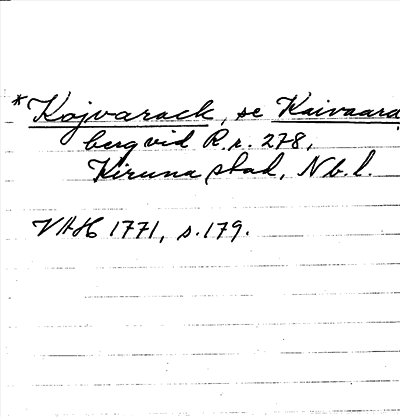 *Kojvarack, se Kaivaara
berg vid R.r. 278,
Kiruna stad, Nb. l.
VAH 1771, s. 179.